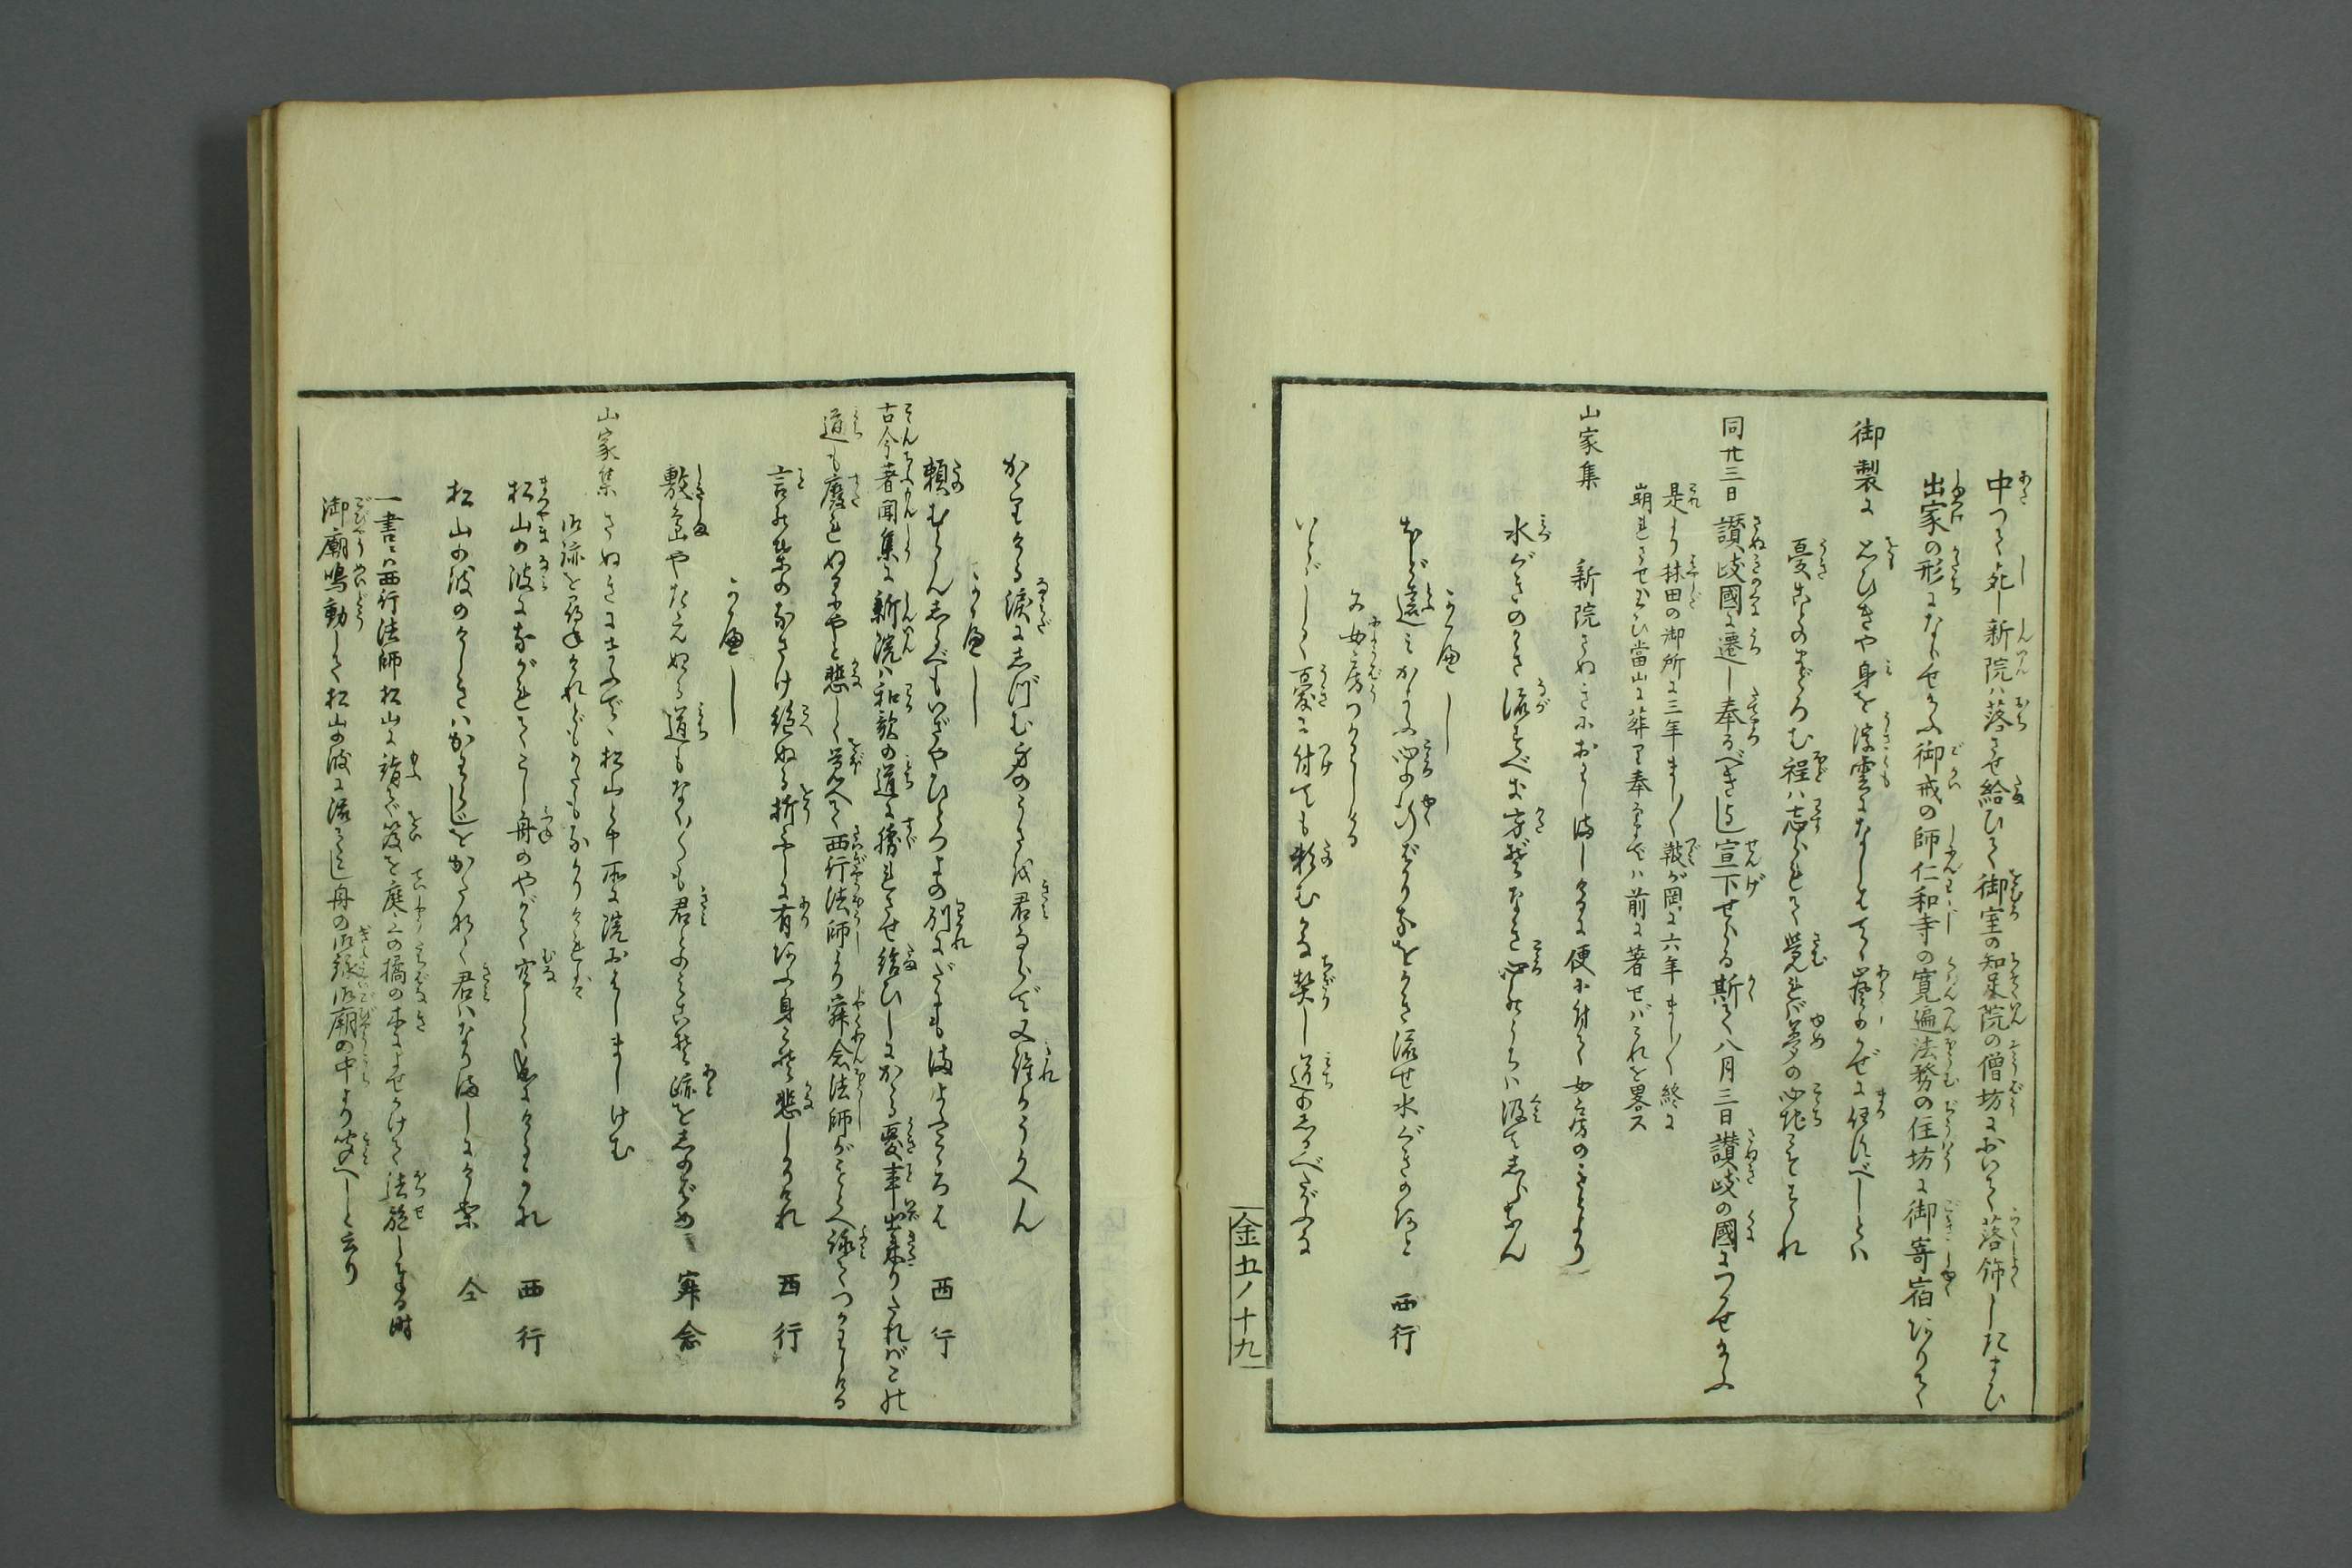 中つて死し新院ハ落させ給ひて御室の知足院の僧坊において落飾したまひ
出家の形にならせ給ふ御戒の師仁和寺の寛遍法務の住坊に御寄宿ありて
御製に 思ひきや身を浮雲になしはてゝ嵐のかぜに任すべしとハ
憂ことのまどろむ程ハ忘られて覚れば夢の心地こそすれ
同廿三日讃岐國に遷し奉るべきよし宣下せらる斯て八月三日讃岐の國につかせ給ふ
是より林田の御所に三年まし〳〵鼓が岡に六年まし〳〵終に
崩れさせ給ひ當山に葬り奉るまでハ前に著せバこれを畧ス
山家集 新院さぬきにおはしましけるに便に付て女房のもとより
水ぐきのかき流すべき方ぞなき心のうちハ汲てしらなん
かへし
ほど遠ミかよふ心の行ばかり猶かき流せ水ぐきのあと 西行
又女房つかはしける
いとゞしく憂に付ても頼むかな契し道のしるべたがふな
金五ノ十九
かゝりける涙にしづむ身のうさを君ならで又誰かうかべん
かへし
頼むらんしるべもいざやひとつよの別にだにも迷ふこゝろは 西行
古今著聞集に新院ハ和歌の道に勝れさせ給ひしにかゝる憂事出来りたれバこの
道も廃れぬるにやと悲しく覚へて西行法師より寂念法師がもとへ詠てつかはしける
言の葉のなさけ絶ぬる折ふしに有あふ身こそ悲しかりけれ 西行
かへし
敷島やたえぬる道もなく〳〵も君とのミこそ跡をしのばめ 寂念
山家集 さぬきにまふでゝ松山と申所に院おはしましけむ
御跡を尋けれどもかたもなかりければ
松山の波にながれてこし舟のやがて空しく成にけるかな 西行
松山の波のけしきハかはらじをかたなく君ハなりましにけり 仝
一書ニハ西行法師松山に詣で笈を庭上の橘の木によせかけて法施しける時
御廟鳴動して松山の波に流てこし舟の御詠御廟の中より聞へしと云り